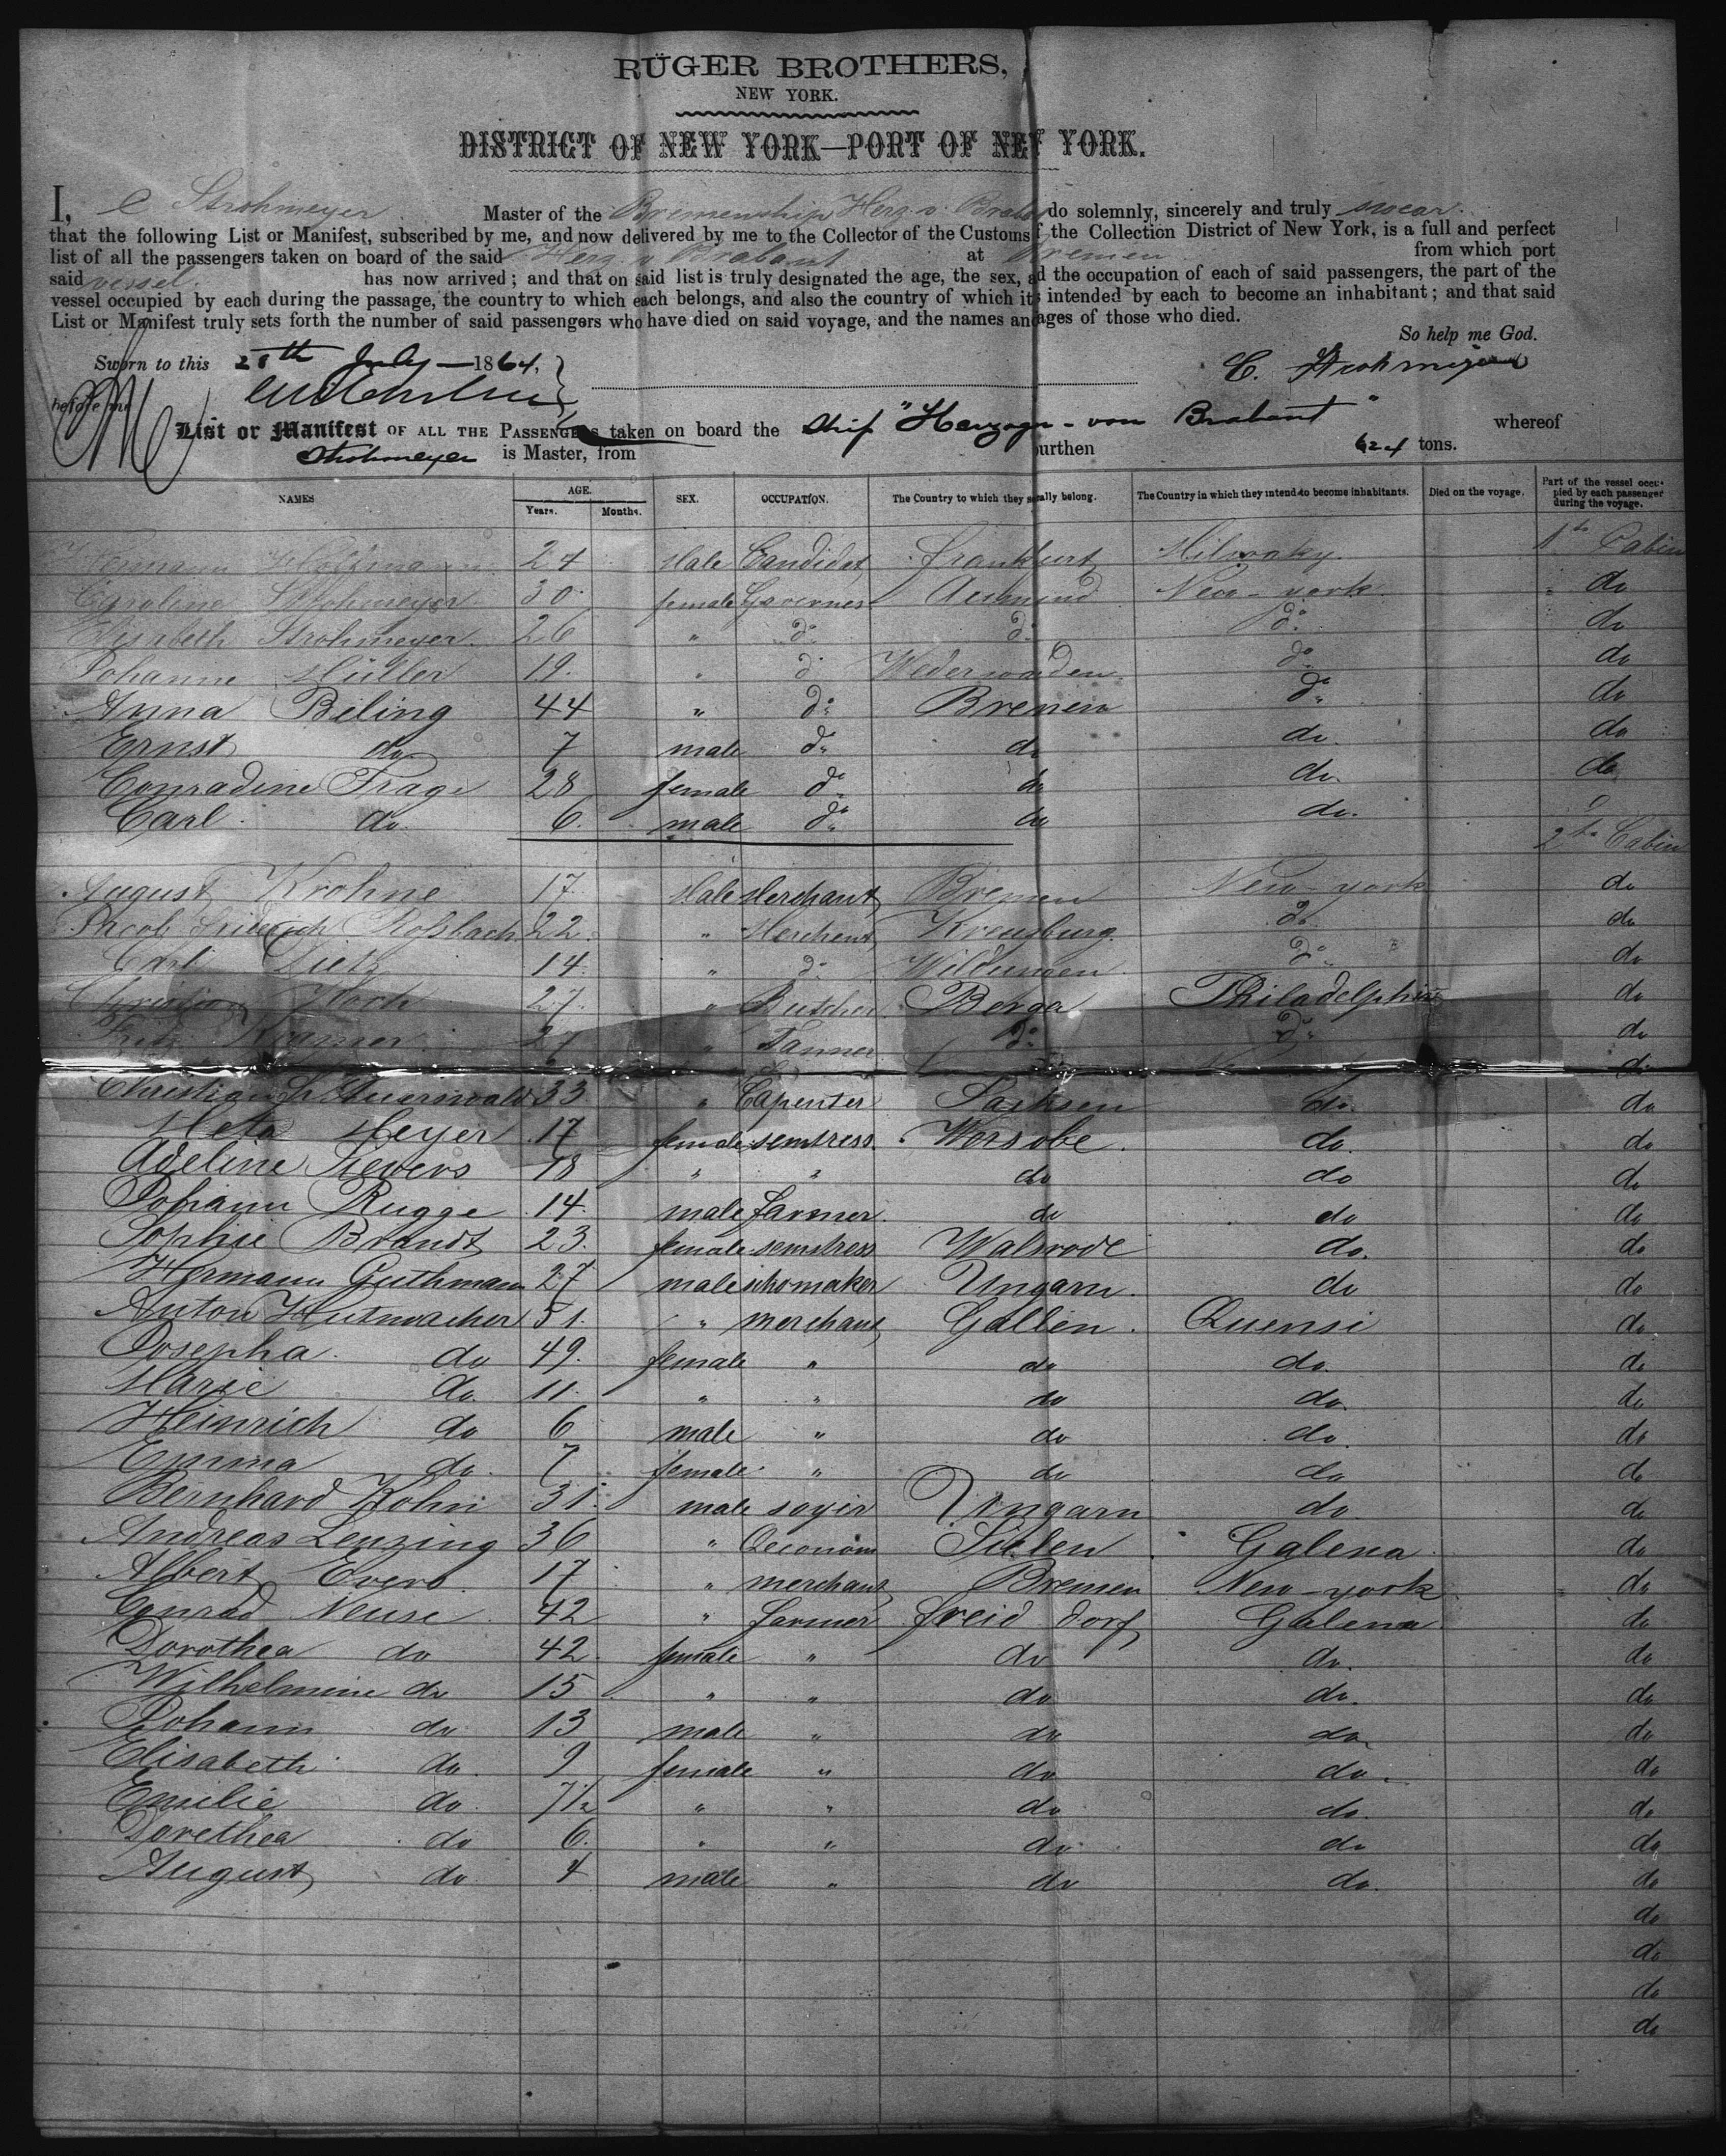 RÜGER BROTHERS,
NEW YORK.
DISTRICT OF NEW YORK—PORT OF NEW YORK.
I, C Strohmeyer Master of the Bremenship Herz. v. Braba do solemnly, sincerely and truly swear.
that the following List or Manifest, subscribed by me, and now delivered by me to the Collector of the Customs f the Collection District of New York, is a full and perfect
list of all the passengers taken on board of the said Herz. v. Brabant at Bremen from which port
said vessel. has now arrived; and that on said list is truly designated the age, the sex, ad the occupation of each of said passengers, the part of the
vessel occupied by each during the passage, the country to which each belongs, and also the country of which it is intended by each to become an inhabitant; and that said
List or Manifest truly sets forth the number of said passengers who have died on said voyage, and the names and ages of those who died.
So help me God.
Sworn to this 28th July — 1864,
C. Strohmeyer
before me
List or Manifest OF ALL THE PASSENGERS taken on board the Ship "Herzogn - von Brabant" whereof
Strohmeyer is Master, from urthen 624 tons.
NAMES AGE. SEX. OCCUPATION. The Country to which they severally belong. The Country in which they intend to become inhabitants. Died on the voyage. Part of the vessel occu-
Years. Months. pied by each passenger
during the voyage.
1th Cabin
Hermann 24 Male Candidat Frankfurt Milwaky.
Caroline Strohmeyer 30 female Governes Aumund New-york do
Elisabeth Strohmeyer 26 " do do do do
Johanne Müller 19. " do Wederwarden do do
Anna Biling 44 " do Bremen do do
Ernst do 7 male do do do do
Conradine Frage 28 female do do do do
Carl do 6. male do do do.
2th Cabin
August Krohne 17 Male Merchant Bremen New-york do
Jacob Friedrich Roßbach 22. " Merchent Kreuzburg do do
Carl Dietz 14. " do Wildungen do do
Christian 27. " Butcher Berga Philadelphia do
Fritz Kramer 27 " Tanner do do do
do
Christian Fr Auerswald 33 " Capenter Sachsen do. do
Meta Meyer 17 female semtress. Worsobe. do. do
Adeline Sievers 18 " " do do do
Johann Rugge 14. male farmer. do do do
Sophie Brandt 23. female semstress Walsrode do. do
Hermann Guthmann 27 male schomaker Ungarn. do do
Anton Hutmacher 51. " merchant Gallen. Quensi do
Josepha do 49. female " do do. do
Marie do. 11. " " do do. do
Heinrich do 6 male " do do. do
Emma do. 7 female " do do do
Bernhard Kohn 31. male Ungarn do do
Andreas Lenzing 36 " Oeconom Galena do
Albert Evers 17 " merchant Bremen New-york do
Conrad Neuse 42 " farmer freid dorf Galena do
Dorothea do 42. female " do do. do
Wilhelmine do 15 " " do do. do
Johann do 13 male " do do do
Elisabeth do 9 female " do do. do
Emilie do 7½ " " do do. do
Dorethea do 6. " " do do do
August do 4 male " do do. do
do
do
do
do